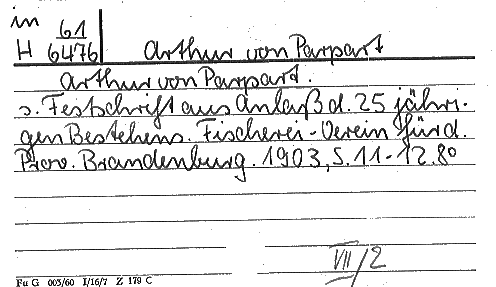 in 61
H 6476 Arthur von Parpart
Arthur von Parpart.
s. Festschrift aus Anlaß d. 25 jähri-
gen Bestehens. Fischerei-Verein für d.
Prov. Brandenburg. 1903, S. 11-12. 8°
VII/2
Fu G 005/60 I/16/7 Z 179 C